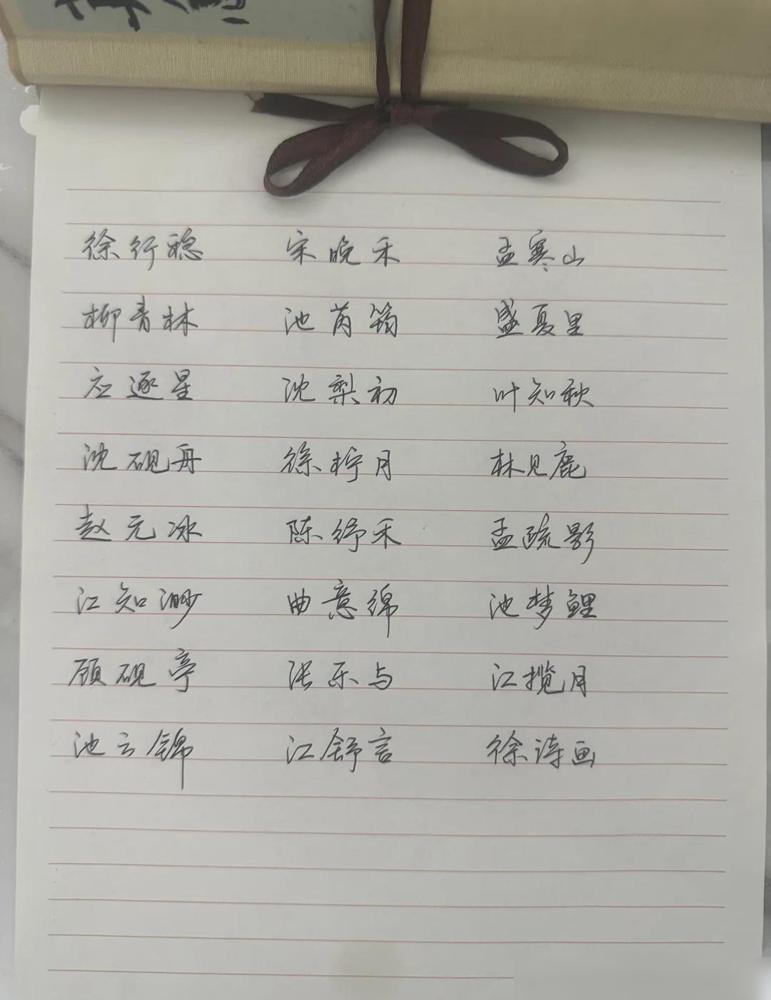 徐行稳 宋晚禾 孟寒山
柳青林 池芮筠 盛夏里
应逐星 沈梨初 叶知秋
沈砚舟 徐柠月 林见鹿
赵元冰 陈纾禾 孟疏影
江知渺 曲意绵 池梦鲤
顾砚亭 张乐与 江揽月
池云锦 江舒言 徐诗画